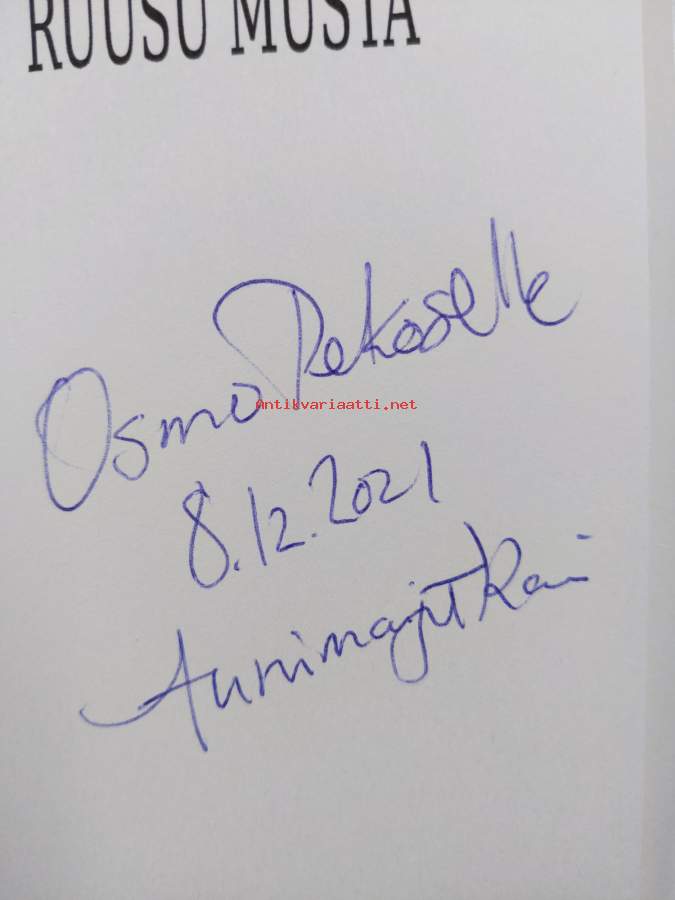 RUUSU MUSTA
Osmo Pekoselle
Antikvariaatti.net
8.12.2021